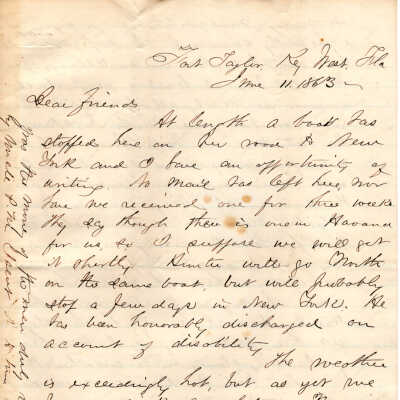 Fort Taylor, Key West, Fla
June 11. 1863
Dear friends
At length a boat has
stopped here on her road to New
York and I have an opportunity of
writing. No mail has left here, nor
have we received one for three weeks
They say though there is one in Havana
for us, so I suppose we will get
it shortly. Hunter will go North
on the same boat, but will probably
stop a few days in New York. He
has been honorably discharged on
account of disability
The weather
is exceedingly hot, but as yet we